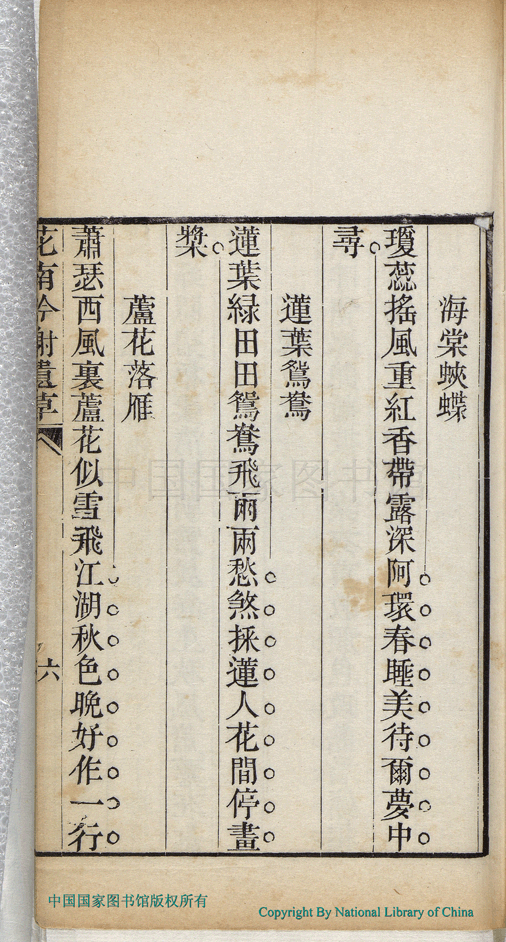 海棠蛺蝶
瓊蕊搖風重紅香帶露深阿環春睡美待爾夢中
尋
蓮葉鴛鴦
蓮葉緑田田鴛鴦飛兩兩愁煞採蓮人花間停畫
槳
蘆花落雁
蕭瑟西風裏蘆花似雪飛江湖秋色晚好作一行
花南吟榭遺草
六
中国国家图书馆
中国国家图书馆版权所有
Copyright By National Library of China